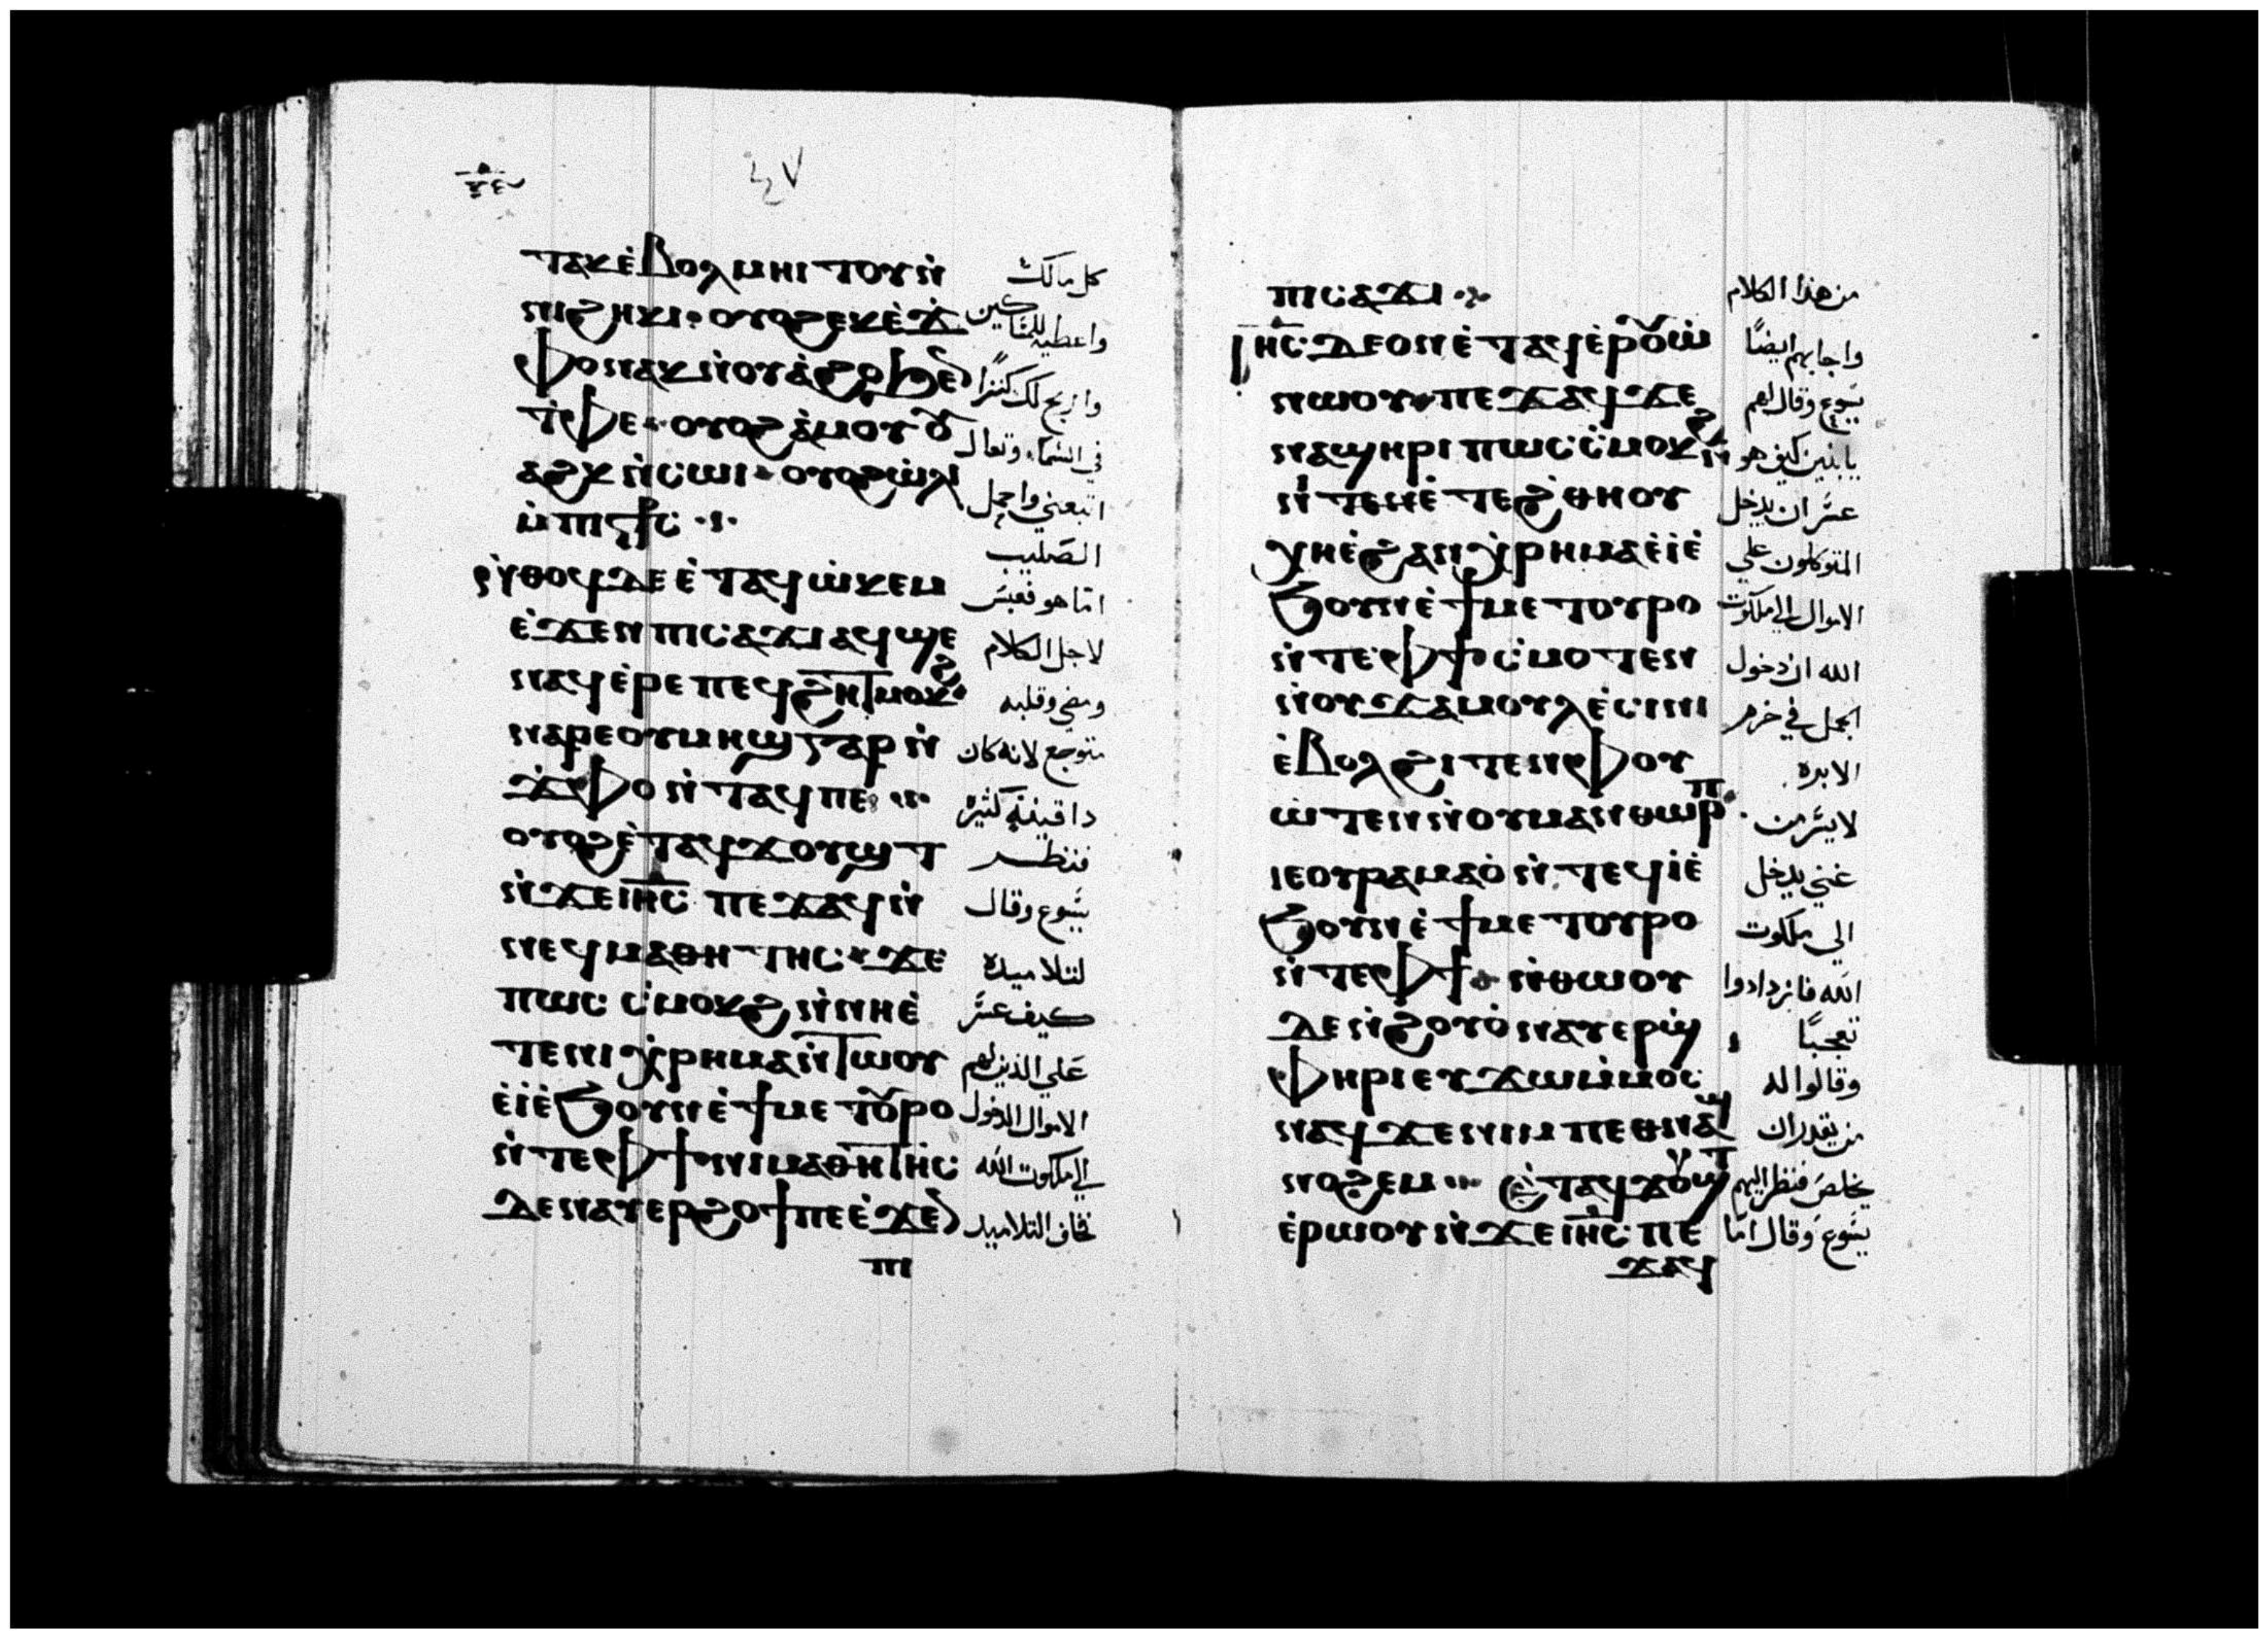 ٤٧
ⲧⲁⲕ ⲉ̀ⲃⲟⲗ ⲙⲏⲓⲧⲟⲩ ⲛ̀ كل مالك
ⲛⲓϩⲏⲕⲓ· ⲟⲩⲟϩ ⲉⲕⲉ̀ϫ̀ واعطيه للمساكين
ⲫⲟ ⲛⲁⲕ ⲛ̀ⲟⲩⲁ̀ϩⲟ ϧⲉⲛ واربح لك كنزًا
ⲧ̀ⲫⲉ· ⲟⲩⲟϩ ⲁ̀ⲙⲟⲩ ⲟⲩ في السماء وتعال
ⲁϩⲕ ⲛ̀ⲥⲱⲓ· ⲟⲩⲟϩ ⲱ̀ⲗⲓ اتبعني واحمل
ⲙ̀ⲡⲓⲥⳁⲥ ·:· الصليب
ⲛ̀ⲑⲟϥ ⲇⲉ ⲉ̀ⲧⲁϥⲱ̀ⲕⲉⲙ اما هو فعبس
ⲉ̀ϫⲉⲛ ⲡⲓⲥⲁϫⲓ ⲁϥϣⲉ لاجل الكلام
ⲛⲁϥ ⲉ̀ⲣⲉ ⲡⲉϥϩⲏⲧ ⲙⲟⲕϩ· ومضي وقلبه
ⲛⲁⲣⲉ ⲟⲩⲙⲏϣ ⲅⲁⲣ ⲛ̀ متوجع لانه كان
ϫ̀ⲫⲟ ⲛ̀ⲧⲁϥ ⲡⲉ ·:· ذا قنية كثيرة
ⲟⲩⲟϩ ⲉ̀ⲧⲁϥϫⲟⲩϣⲧ فنظر
ⲛ̀ϫⲉ ⲓⲏ̅ⲥ̅ ⲡⲉϫⲁϥ ⲛ̀ يسوع وقال
ⲛⲉϥⲙⲁⲑⲏⲧⲏⲥ· ϫⲉ لتلاميذه
ⲡⲱⲥ ⲥ̀ⲙⲟⲕϩ ⲛ̀ⲛⲏⲉ̀ كيف عسر
ⲧⲉ ⲛⲓⲭ̀ⲣⲏⲙⲁ ⲛ̀ⲧⲱⲟⲩ علي الذين لهم
ⲉ̀ⲓ̀ⲉ̀ϧⲟⲩⲛ ⲉ̀ϯⲙⲉⲧⲟⲩⲣⲟ الاموال الدخول
ⲛ̀ⲧⲉ ⲫϯ· ⲛⲓⲙⲁⲑⲏⲧⲏⲥ الي ملكوت الله
ⲇⲉ ⲛⲁⲩⲉⲣϩⲟϯ ⲡⲉ ⲉ̀ϫⲉⲛ فخاف التلاميذ
ⲡⲓ
ⲡⲓⲥⲁϫⲓ ·:· من هذا الكلام
ⲓⲏ̅ⲥ̅ ⲇⲉ ⲟⲛ ⲉ̀ⲧⲁϥⲉ̀ⲣⲟⲩⲱ̀ واجابهم ايضًا
ⲛⲱⲟⲩ· ⲡⲉϫⲁϥ ϫⲉ يسوع وقال لهم
ⲛⲁϣⲏⲣⲓ ⲡⲱⲥ ⲥ̀ⲙⲟⲕϩ ⲛ̀ يابنين كيف هو
ⲛ̀ⲧⲉ ⲛⲉ̀ⲧⲉ ϩ̀ⲑⲏⲟⲩ عسر ان يدخل
ⲭⲏ ⲉ̀ϩⲁⲛⲭ̀ⲣⲏⲙⲁ ⲉ̀ⲓ̀ⲉ̀ المتوكلون علي
ϧⲟⲩⲛ ⲉ̀ϯⲙⲉⲧⲟⲩⲣⲟ الاموال الي ملكوت
ⲛ̀ⲧⲉ ⲫϯ ⲥ̀ⲙⲟⲧⲉⲛ الله ان دخول
ⲛ̀ⲟⲩϫⲁⲙⲟⲩⲗ ⲉ̀ⲥⲓⲛⲓ الجمل في خرم
ⲉ̀ⲃⲟⲗ ϩⲓⲧⲉⲛ ⲫⲟⲩ الابره
ⲱ̀ⲧⲉⲛ ⲛ̀ⲟⲩⲙⲁⲛⲑⲱⲣⲡ· لايسر من
ⲓⲉ ⲟⲩⲣⲁⲙⲁⲟ̀ ⲛ̀ⲧⲉϥⲓ̀ⲉ̀ غني يدخل
ϧⲟⲩⲛ ⲉ̀ϯⲙⲉⲧⲟⲩⲣⲟ الي ملكوت
ⲛ̀ⲧⲉ ⲫϯ· ⲛ̀ⲑⲱⲟⲩ الله فازدادوا
ⲇⲉ ⲛ̀ϩⲟⲩⲟ̀ ⲛⲁⲩⲉⲣϣ̀ تعجبًا
ⲫⲏⲣⲓ ⲉⲩϫⲱ ⲙ̀ⲙⲟⲥ وقالوا له
ⲛⲁϥ ϫⲉ ⲛⲓⲙ ⲡⲉⲑⲛⲁϣ من يقدر ان
ⲛⲟϩⲉⲙ ·:· ⲉ̀ⲧⲁϥϫⲟⲩϣⲧ يخلص فنظر اليهم
ⲉ̀ⲣⲱⲟⲩ ⲛ̀ϫⲉ ⲓⲏ̅ⲥ̅ ⲡⲉ يسوع وقال اما
ϫⲁϥ